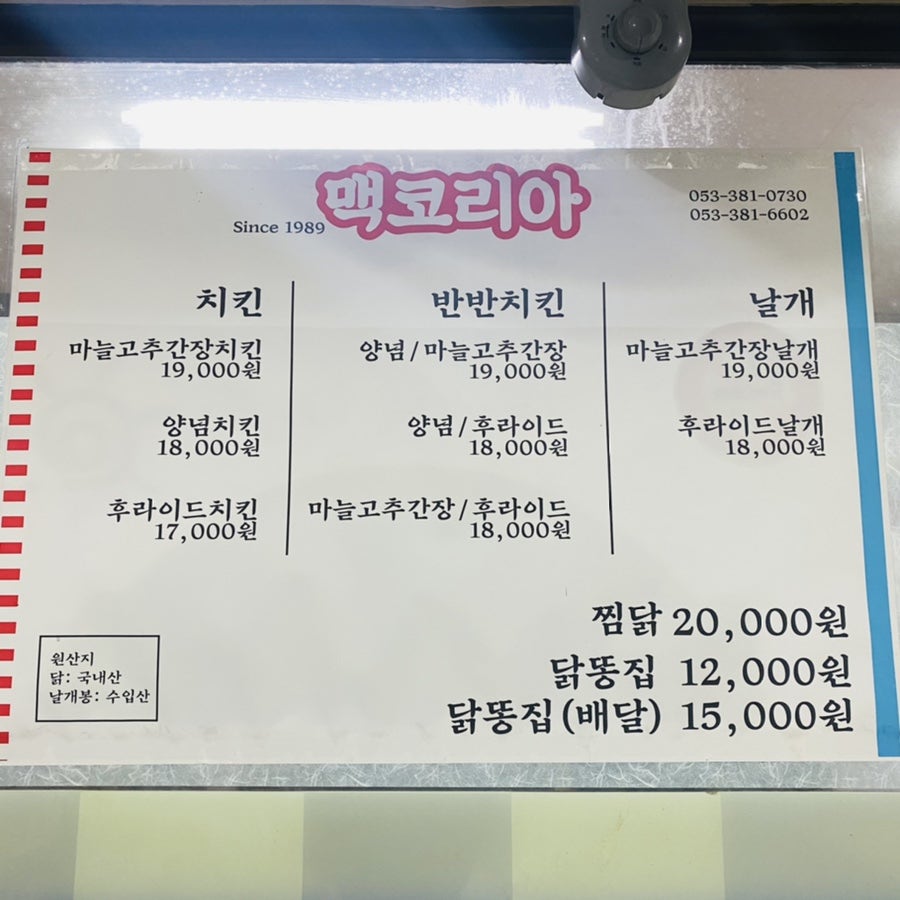 Since 1989
맥코리아
053-381-0730
053-381-6602
치킨
마늘고추간장치킨
19,000원
양념치킨
18,000원
후라이드치킨
17,000원
반반치킨
양념/마늘고추간장
19,000원
양념/후라이드
18,000원
마늘고추간장/후라이드
18,000원
날개
마늘고추간장날개
19,000원
후라이드날개
18,000원
찜닭 20,000원
닭똥집 12,000원
닭똥집(배달) 15,000원
원산지
닭: 국내산
날개봉: 수입산